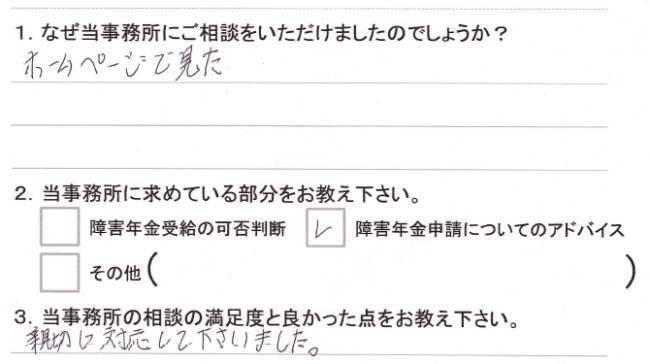 1. なぜ当事務所にご相談をいただけましたのでしょうか？
ホームページで見た
2. 当事務所に求めている部分をお教え下さい。
障害年金受給の可否判断 レ 障害年金申請についてのアドバイス
その他（ ）
3. 当事務所の相談の満足度と良かった点をお教え下さい。
親切に対応して下さいました。